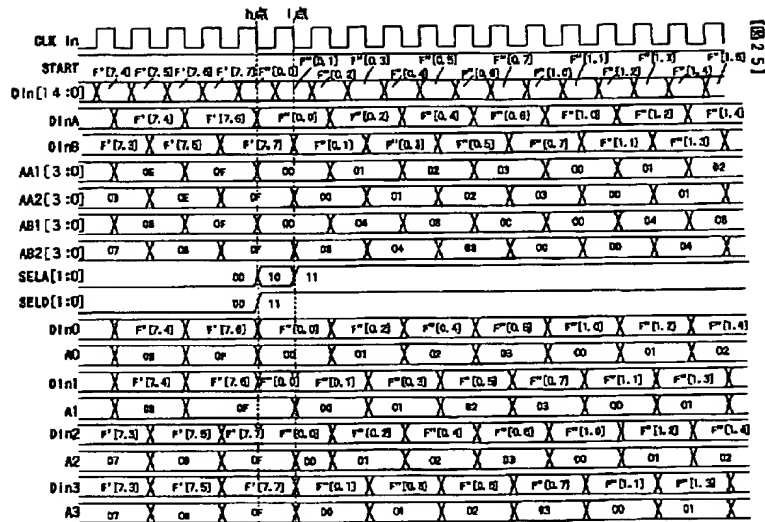 h点 i点
【図25】
CLK In
START
F'[7,4] F'[7,5] F'[7,6] F'[7,7] F"[0,0] F"[0,1] F"[0,2] F"[0,3] F"[0,4] F"[0,5] F"[0,6] F"[0,7] F"[1,0] F"[1,1] F"[1,2] F"[1,3] F"[1,4] F"[1,5]
DIn[14:0]
DInA F'[7,4] F'[7,6] F"[0,0] F"[0,2] F"[0,4] F"[0,6] F"[1,0] F"[1,2] F"[1,4]
DInB F'[7,3] F'[7,5] F'[7,7] F"[0,1] F"[0,3] F"[0,5] F"[0,7] F"[1,1] F"[1,3]
AA1[3:0] 0E 0F 00 01 02 03 00 01 02
AA2[3:0] 0E 0F 00 01 02 03 00 01
AB1[3:0] 0F 00 04 08 0C 00 04 08
AB2[3:0] 07 0F 04 0C 00 04
SELA[1:0] 00 10 11
SELD[1:0] 00 11
DIn0 F'[7,4] F'[7,6] F"[0,0] F"[0,2] F"[0,4] F"[0,6] F"[1,0] F"[1,2] F"[1,4]
A0 0F 00 01 02 03 00 01 02
DIn1 F'[7,4] F'[7,6] F"[0,0] F"[0,1] F"[0,3] F"[0,5] F"[0,7] F"[1,1] F"[1,3]
A1 0F 00 01 02 03 00 01
DIn2 F'[7,3] F'[7,5] F'[7,7] F"[0,0] F"[0,2] F"[0,4] F"[0,6] F"[1,0] F"[1,2] F"[1,4]
A2 07 0F 00 01 02 03 00 01 02
DIn3 F'[7,3] F'[7,5] F'[7,7] F"[0,1] F"[0,3] F"[0,5] F"[0,7] F"[1,1] F"[1,3]
A3 07 0F 00 01 02 03 00 01